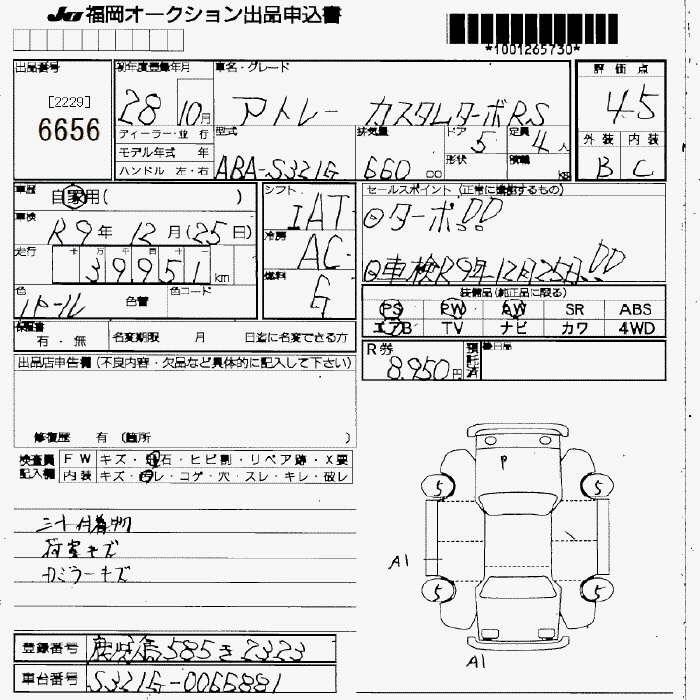 JU 福岡オークション出品申込書
*1001265730*
出品番号
[2229]
6656
初年度登録年月
28 10月
車名・グレード
アトレー カスタムターボRS
評価点
4.5
外装 内装
B C
ディーラー・並行
モデル年式 年
ハンドル 左・右
型式
ABA-S321G
排気量
660 cc
ドア
5
形状
定員
4人
積載
kg
車歴
自家用( )
車検
R9年 12月(25日)
走行
十 万 千 百 十 一
39951 km
色
パール
色替
色コード
シフト
IAT
冷房
AC
燃料
G
セールスポイント (正常に機能するもの)
ターボ!!
車検R9年12月25日!!
装備品(純正品に限る)
PS PW AW SR ABS
エアB TV ナビ カワ 4WD
保証書
有・無
名変期限 月 日迄に名変できる方
R券
8,950円
預託済
後日品
出品店申告欄 (不良内容・欠品など具体的に記入して下さい)
修復歴 有 (箇所 )
検査員記入欄
FW キズ・飛石・ヒビ割・リペア跡・X要
内装 キズ・汚レ・コゲ・穴・スレ・キレ・破レ
シート付着物
荷室キズ
カミラーキズ
P
5 5
A1
5 5
A1
登録番号
鹿児島 585 き 2323
車台番号
S321G-0065881